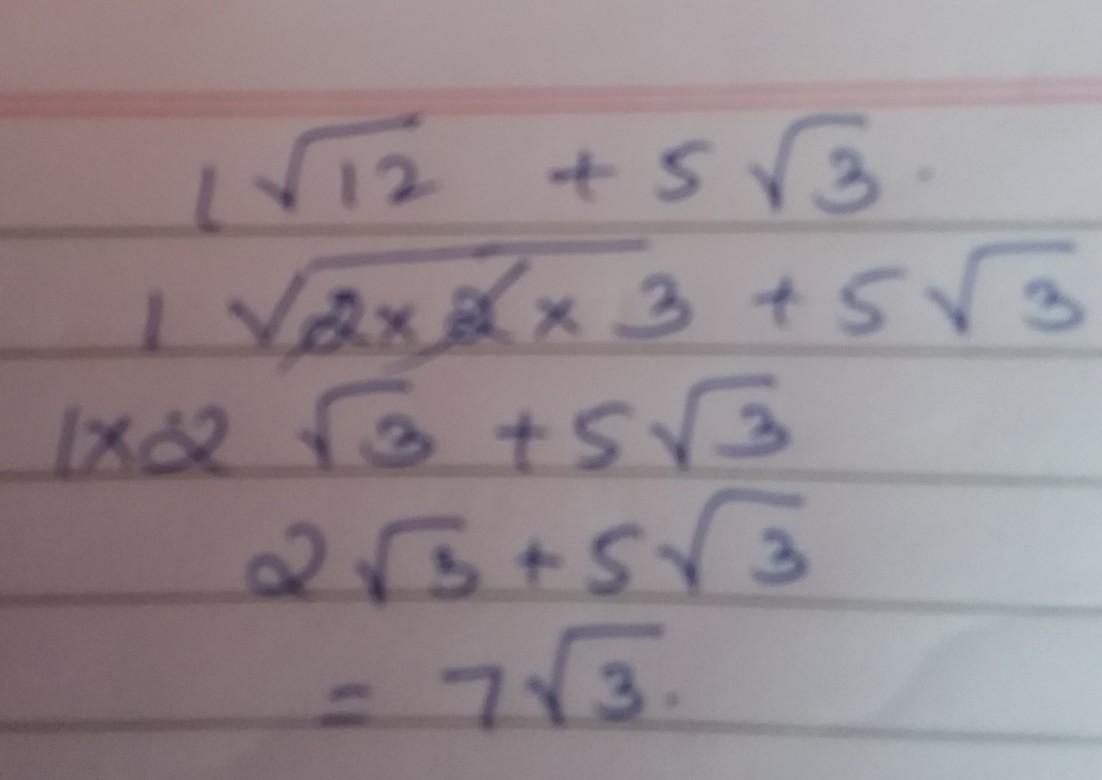 1 √12 + 5 √3.
1 √2 x 2 x 3 + 5 √3
1x2 √3 + 5 √3
2 √3 + 5 √3
= 7 √3.